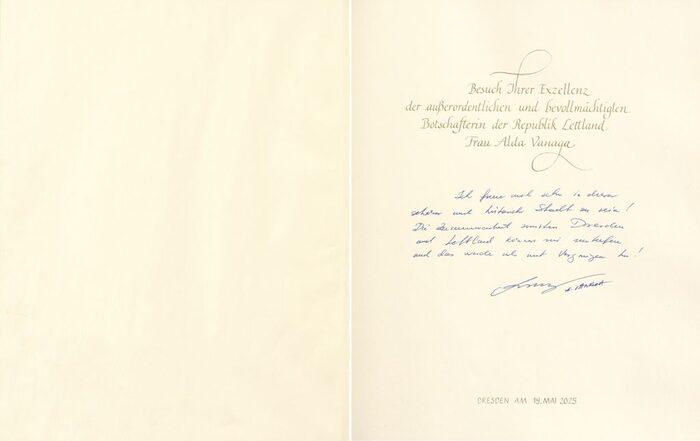 Besuch Ihrer Exzellenz
der außerordentlichen und bevollmächtigten
Botschafterin der Republik Lettland
Frau Alda Vanaga
Ich freue mich sehr in dieser
schönen und historisch Stadt zu sein!
Die Zusammenarbeit zwischen Dresden
und Lettland können wir vertiefen
und das werde ich mit Vergnügen tun!
A. VANAGA
DRESDEN AM 19. MAI 2025